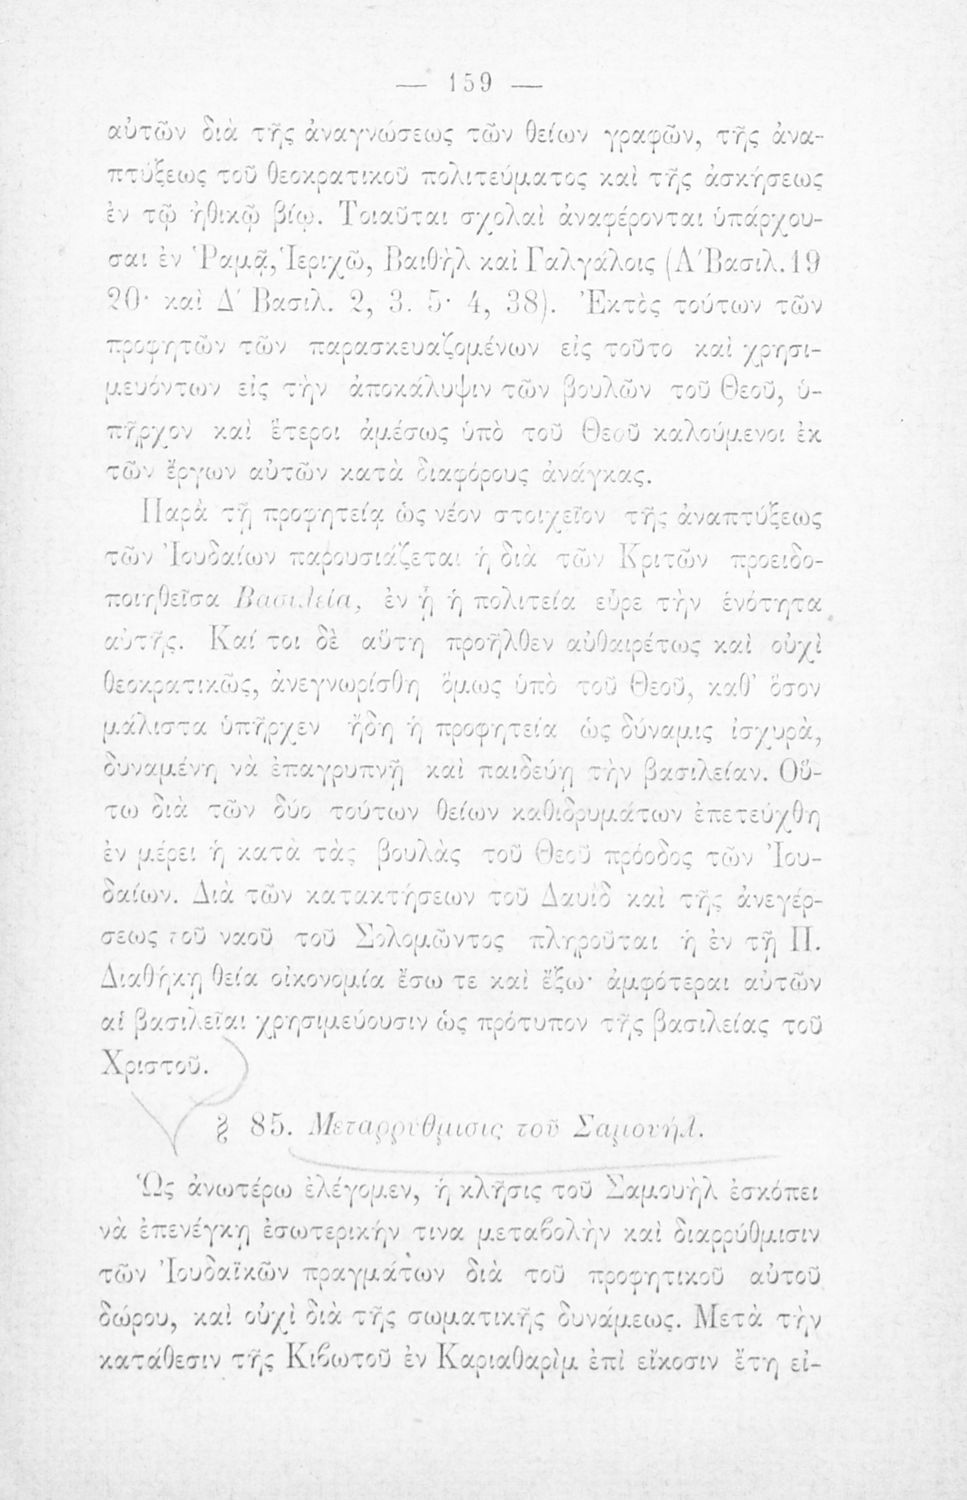 — 159 —
αὐτῶν διὰ τῆς ἀναγνώσεως τῶν θείων γραφῶν, τῆς ἀνα-
πτύξεως τοῦ θεοκρατικοῦ πολιτεύματος καὶ τῆς ἀσκήσεως
ἐν τῷ ἠθικῷ βίῳ. Τοιαῦται σχολαὶ ἀναφέρονται ὑπάρχου-
σαι ἐν Ῥαμᾷ, Ἰεριχῶ, Βαιθὴλ καὶ Γαλγάλοις (Α΄ Βασιλ. 19
20· καὶ Δ΄ Βασιλ. 2, 3. 5· 4, 38). Ἐκτὸς τούτων τῶν
προφητῶν τῶν παρασκευαζομένων εἰς τοῦτο καὶ χρησι-
μευόντων εἰς τὴν ἀποκάλυψιν τῶν βουλῶν τοῦ Θεοῦ, ὑ-
πῆρχον καὶ ἕτεροι ἀμέσως ὑπὸ τοῦ Θεοῦ καλούμενοι ἐκ
τῶν ἔργων αὐτῶν κατὰ διαφόρους ἀνάγκας.
Παρὰ τῇ προφητείᾳ ὡς νέον στοιχεῖον τῆς ἀναπτύξεως
τῶν Ἰουδαίων παρουσιάζεται ἡ διὰ τῶν Κριτῶν προειδο-
ποιηθεῖσα Βασιλεία, ἐν ᾗ ἡ πολιτεία εὗρε τὴν ἑνότητα
αὐτῆς. Καί τοι δὲ αὕτη προῆλθεν αὐθαιρέτως καὶ οὐχὶ
θεοκρατικῶς, ἀνεγνωρίσθη ὅμως ὑπὸ τοῦ Θεοῦ, καθ' ὅσον
μάλιστα ὑπῆρχεν ἤδη ἡ προφητεία ὡς δύναμις ἰσχυρὰ,
δυναμένη νὰ ἐπαγρυπνῇ καὶ παιδεύῃ τὴν βασιλείαν. Οὕ-
τω διὰ τῶν δύο τούτων θείων καθιδρυμάτων ἐπετεύχθη
ἐν μέρει ἡ κατὰ τὰς βουλὰς τοῦ Θεοῦ πρόοδος τῶν Ἰου-
δαίων. Διὰ τῶν κατακτήσεων τοῦ Δαυὶδ καὶ τῆς ἀνεγέρ-
σεως τοῦ ναοῦ τοῦ Σολομῶντος πληροῦται ἡ ἐν τῇ Π.
Διαθήκῃ θεία οἰκονομία ἔσω τε καὶ ἔξω· ἀμφότεραι αὐτῶν
αἱ βασιλεῖαι χρησιμεύουσιν ὡς πρότυπον τῆς βασιλείας τοῦ
Χριστοῦ.
§ 85. Μεταρρύθμισις τοῦ Σαμουήλ.
Ὡς ἀνωτέρω ἐλέγομεν, ἡ κλῆσις τοῦ Σαμουὴλ ἐσκόπει
νὰ ἐπενέγκῃ ἐσωτερικήν τινα μεταβολὴν καὶ διαρρύθμισιν
τῶν Ἰουδαϊκῶν πραγμάτων διὰ τοῦ προφητικοῦ αὐτοῦ
δώρου, καὶ οὐχὶ διὰ τῆς σωματικῆς δυνάμεως. Μετὰ τὴν
κατάθεσιν τῆς Κιβωτοῦ ἐν Καριαθαρὶμ ἐπὶ εἴκοσιν ἔτη εἰ-